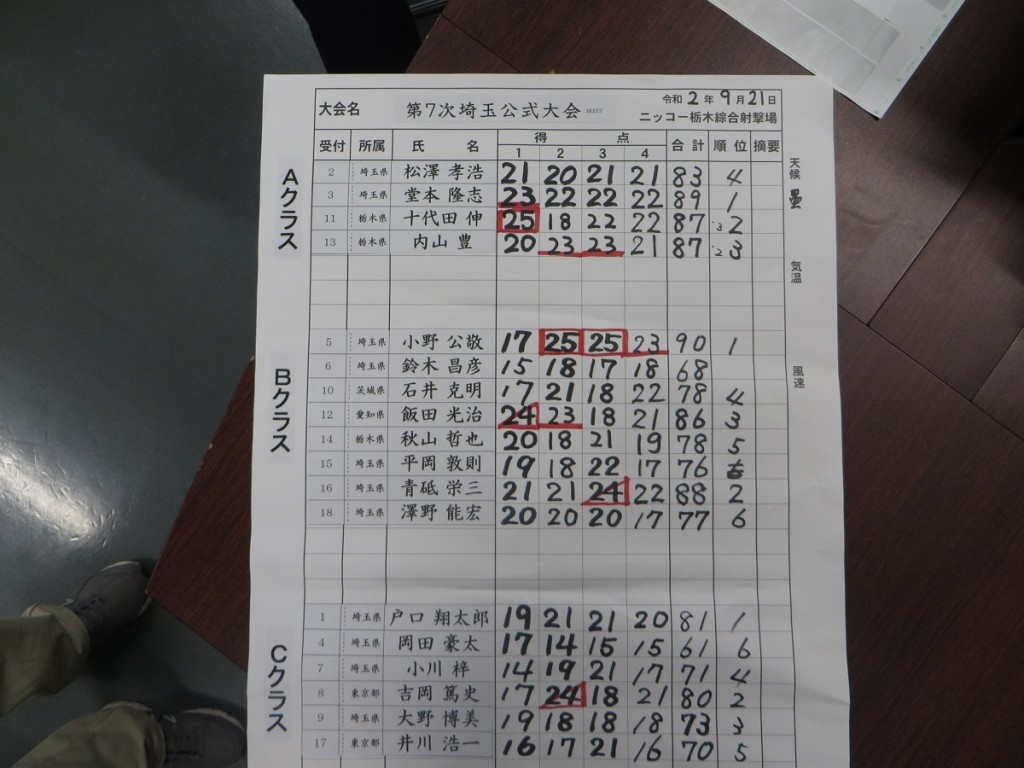 大会名 第7次埼玉公式大会 SKEET 令和 2 年 9 月 21 日
ニッコー栃木綜合射撃場
受付 所属 氏 名 得 点 合計 順位 摘要
1 2 3 4
Aクラス
2 埼玉県 松澤 孝浩 21 20 21 21 83 4
3 埼玉県 堂本 隆志 23 22 22 22 89 1
11 栃木県 十代田 伸 25 18 22 22 87 2
13 栃木県 内山 豊 20 23 23 21 87 3
Bクラス
5 埼玉県 小野 公敬 17 25 25 23 90 1
6 埼玉県 鈴木 昌彦 15 18 17 18 68
10 茨城県 石井 克明 17 21 18 22 78 4
12 愛知県 飯田 光治 24 23 18 21 86 3
14 栃木県 秋山 哲也 20 18 21 19 78 5
15 埼玉県 平岡 敦則 19 18 22 17 76
16 埼玉県 青砥 栄三 21 21 24 22 88 2
18 埼玉県 澤野 能宏 20 20 20 17 77 6
Cクラス
1 埼玉県 戸口 翔太郎 19 21 21 20 81 1
4 埼玉県 岡田 豪太 17 14 15 15 61 6
7 埼玉県 小川 梓 14 19 21 17 71 4
8 東京都 吉岡 篤史 17 24 18 21 80 2
9 埼玉県 大野 博美 19 18 18 18 73 3
17 東京都 井川 浩一 16 17 21 16 70 5
天候 曇
気温
風速